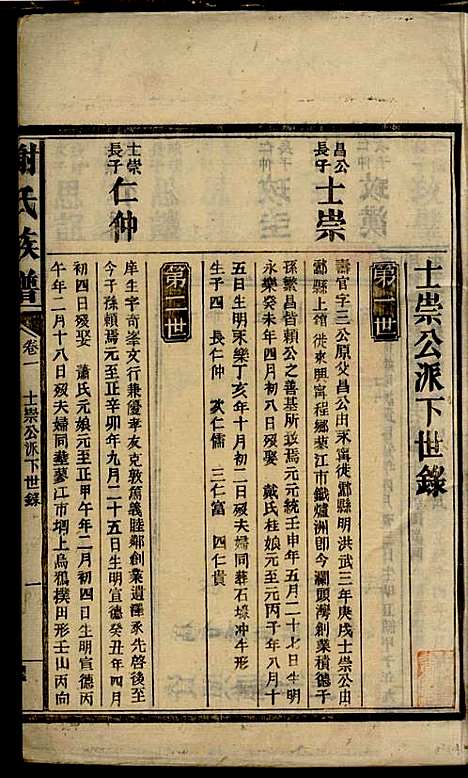 士崇公派下世錄
第一世
昌公長子 士崇
壽官字三公原父昌公出永寧徙酃縣明洪武三年庚戌士崇公出
酃縣上館徙東興寧程鄉蓼江市鐵爐洲卽今瀾頭灣創業積德于
孫繁昌皆賴公之善基所致焉元元統壬申年五月二十七日生明
永樂癸未年四月初八日歿娶 戴氏桂娘元至元丙子年八月十
五日生明永樂丁亥年十月初二日歿夫婦同葬石壕沖牛形
生子四 長仁仲 次仁儒 三仁富 四仁貴
第二世
士崇長子 仁仲
庠生字奇峯文行兼優孝友克敦篤義睦鄰創業遺澤承先啓後至
今子孫賴焉元至正辛卯年九月二十五日生明宣德癸丑年四月
初四日歿娶 蕭氏元娘元至正甲午年二月初四日生明宣德丙
午年二月十八日歿夫婦同葬蓼江市壩上烏狐樸田形壬山丙向
謝氏族譜 卷一 士崇公派下世錄 一